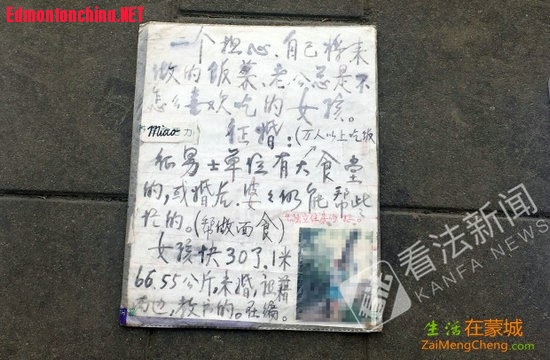 Edmontonchina.NET
一个担心.自己将来
做的饭菜、老公总是不
怎么喜欢吃的女孩。
miao 力
征婚:(万人以上吃饭
征男士单位有大食堂
的,或婚后.婆婆仍能帮此
忙的。(帮做面食)
女孩快30了.1米
66.55公斤.未婚,祖籍
教 的。在编。
看法新闻
KANFA NEWS
生活在蒙城
ZaiMengCheng.com